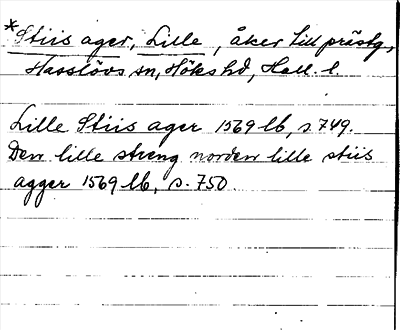 *Stiis ager, Lille, åker till prästg,
Hasslövs sn, Höks hd, Hall. l.
Lille Stiis ager 1569 lb, s. 749.
Den lille streng norden lille stiis
agger 1569 lb, s. 750.